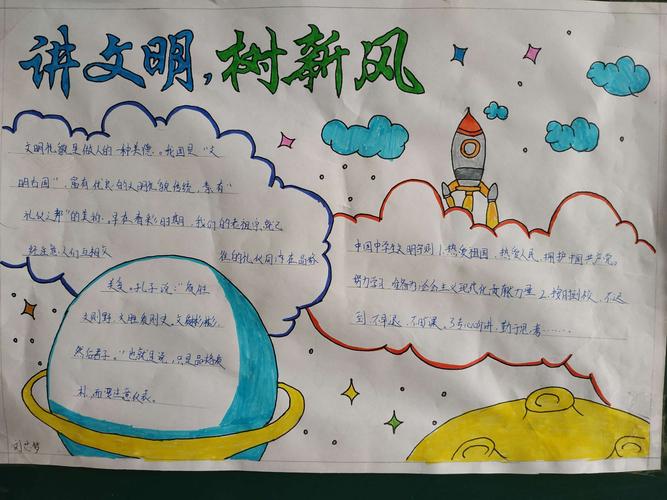 讲文明,树新风
文明礼貌是做人的一种美德。我国是"文
明古国",富有优良的文明礼貌传统,素有"
礼仪之邦"的美称。早在春秋时期,我们的老祖宗就已
经注意人们与相交 的礼仪同内在品格
关系。孔子说:"质胜
文则野,文胜质则史,文质彬彬,
然后君子。"也就是说,只是品格质
朴,而要注意仪表。
中国中学生文明守则1.热爱祖国,热爱人民,拥护中国共产党。
努力学习 准备为社会主义现代化贡献力量2.按时到校,不迟
到 不早退,不旷课。3专心听讲,勤于思考……